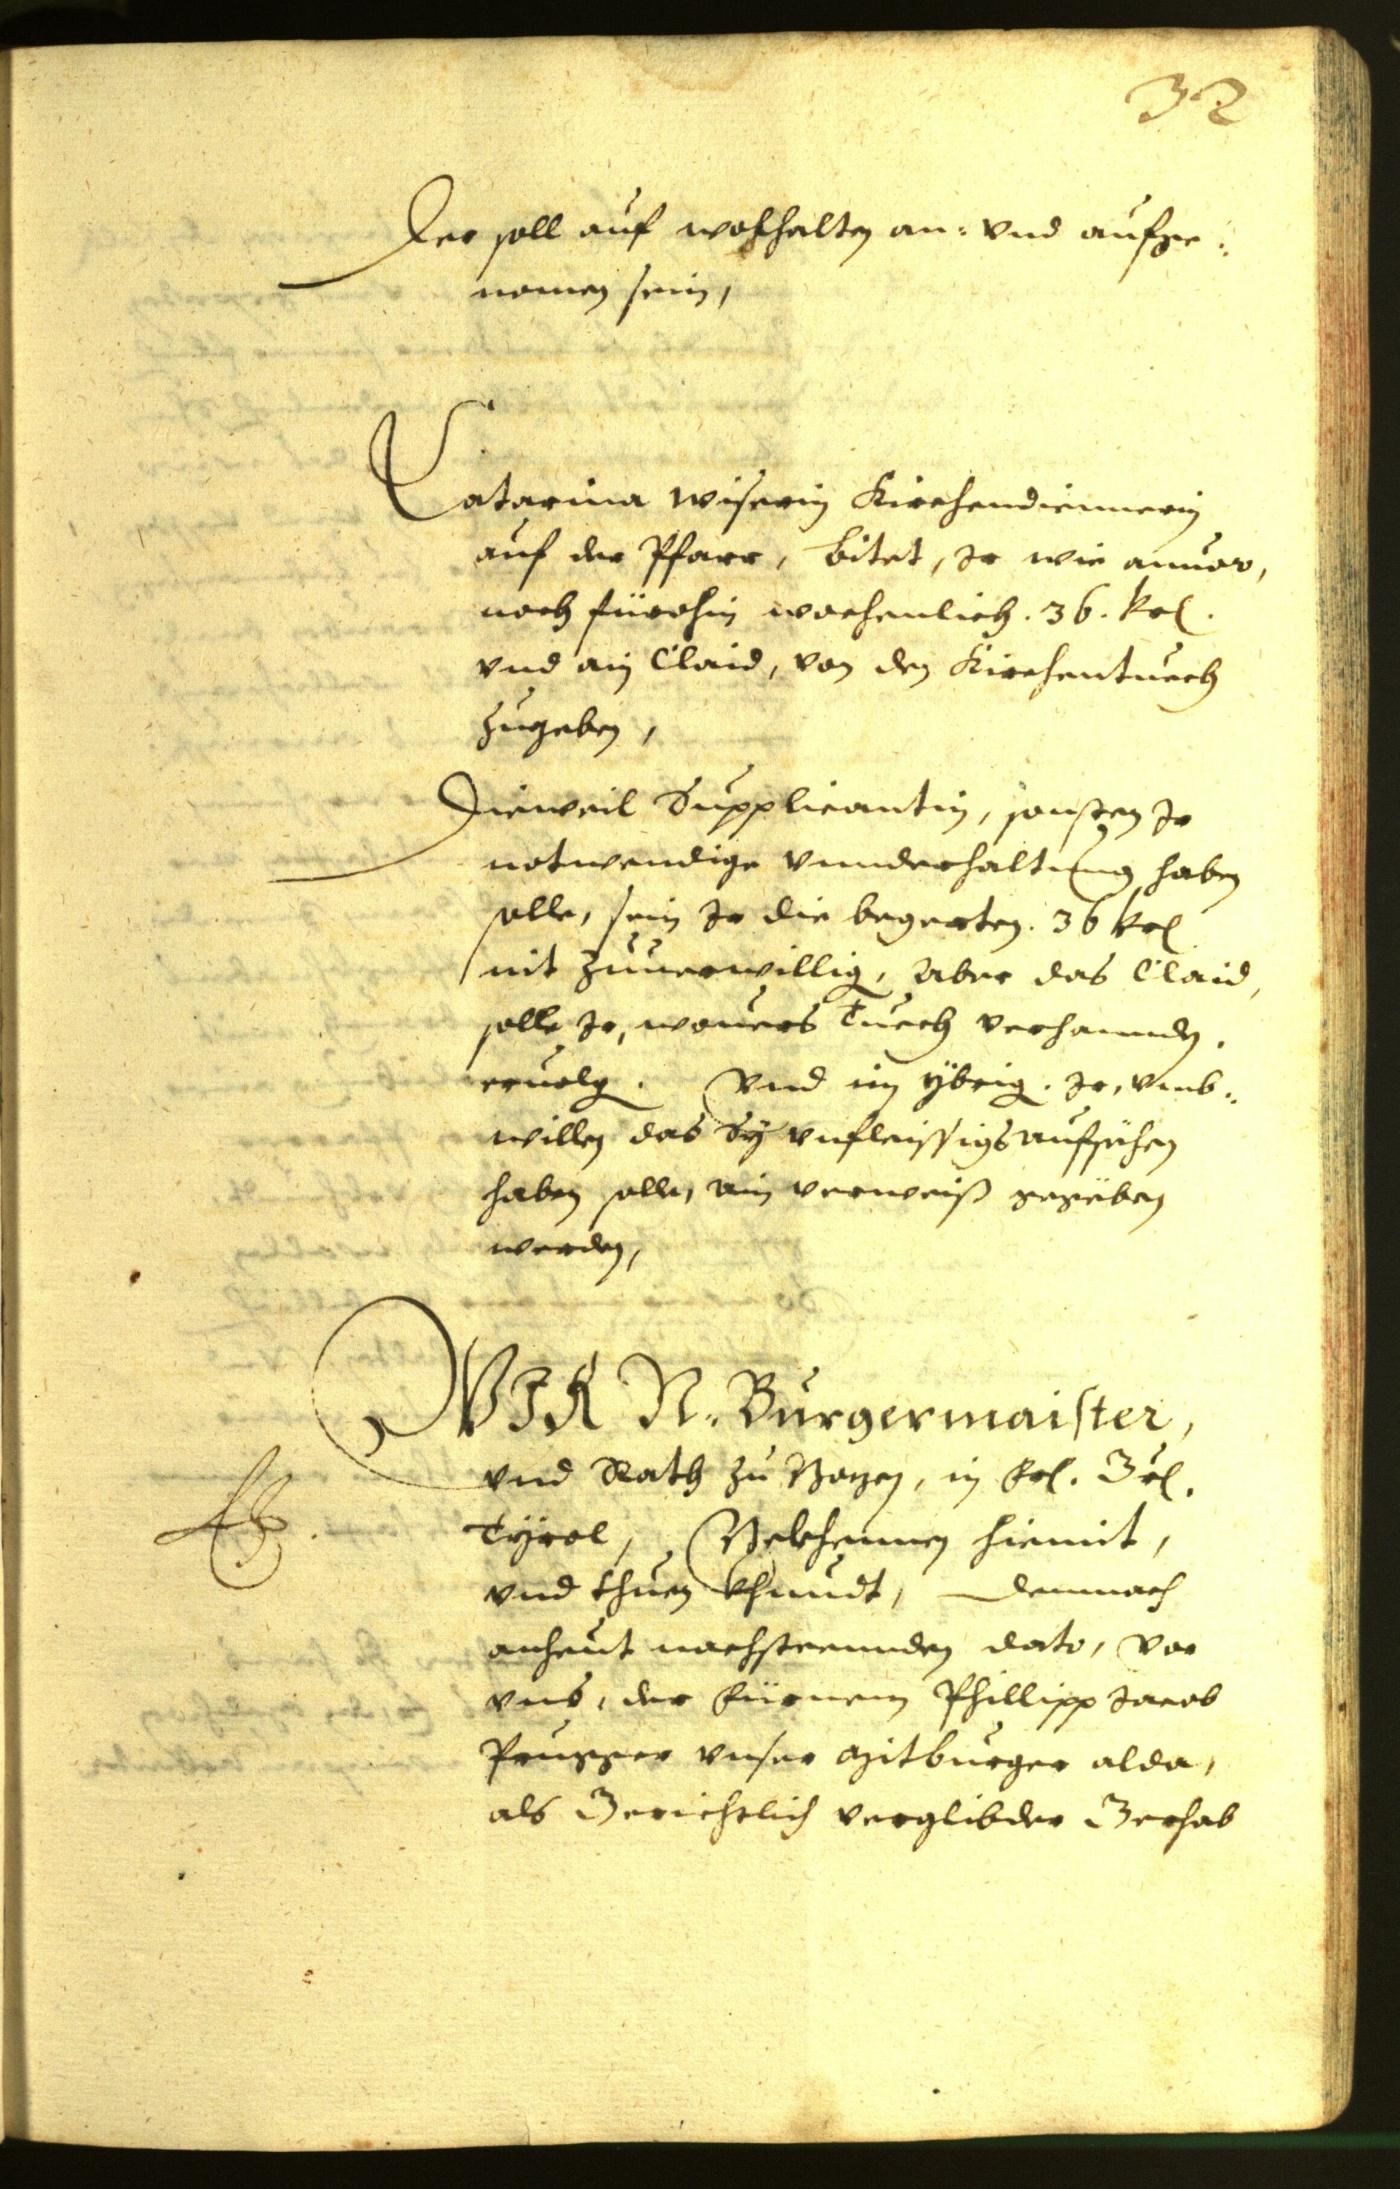 32
Der soll auf wolhalten an: vnd aufge:
nomen sein,
Catarina Wiserin Kirchendiennerin
auf der Pfarr, bitet, Ir wie anuor,
noch fürohin wochenlich. 36. krl.
vnd ain Claid, von den Kirchentuech
zugeben,
Dieweil Supplicantin, sonsten Ir
notwendige vnnderhaltung haben
solle, sein Ir die begerten. 36 krl
nit zuuerwillig, Aber das Claid,
solle Ir, wouers Tuech verhannden.
eruolg. Vnd im ÿbrig. Ir, vmb:
willen das Sÿ vnfleissigs aufsëhen
haben solle, ain verweiß gegëben
werden,
WIR N. Burgermaister,
vnd Rath zu Bozen, in Frl. Grl.
Tÿrol, Bekhennen hiemit,
vnd thuen khundt, Demnach
anheut nachsteennden dato, vor
vns, der Fürnem Phillipp Jacob
vnser Mitburger alda,
als Gerichtlich verglibder Gerhab